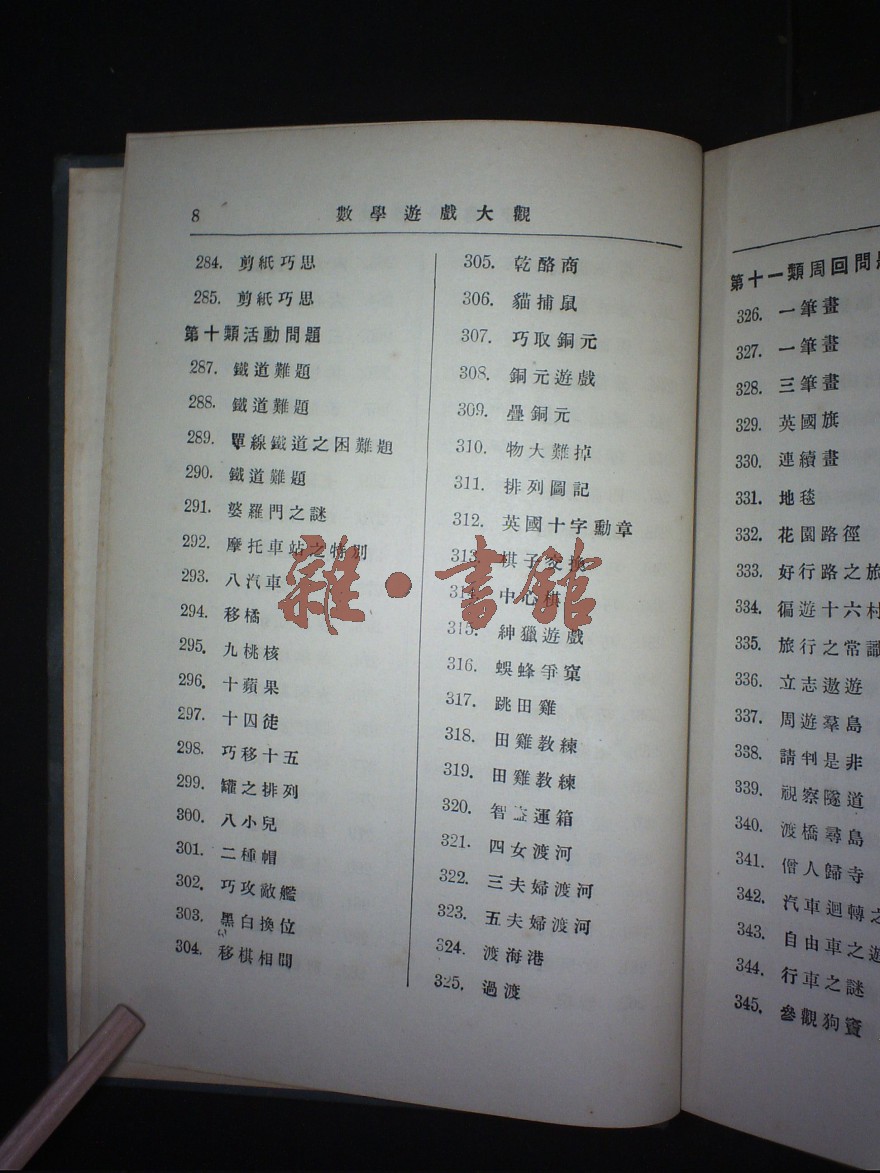 8 數學遊戲大觀
284. 剪紙巧思
285. 剪紙巧思
第十類活動問題
287. 鐵道難題
288. 鐵道難題
289. 單線鐵道之困難題
290. 鐵道難題
291. 婆羅門之謎
292. 摩托車站之特別
293. 八汽車
294. 移橘
295. 九桃核
296. 十蘋果
297. 十囚徒
298. 巧移十五
299. 罐之排列
300. 八小兒
301. 二種帽
302. 巧攻敵艦
303. 黑白換位
304. 移棋相間
305. 乾酪商
306. 貓捕鼠
307. 巧取銅元
308. 銅元遊戲
309. 疊銅元
310. 物大難掉
311. 排列圖記
312. 英國十字勳章
313. 棋子交換
314. 中心棋
315. 紳獵遊戲
316. 蜈蜂爭窠
317. 跳田雞
318. 田雞教練
319. 田雞教練
320. 智盜運箱
321. 四女渡河
322. 三夫婦渡河
323. 五夫婦渡河
324. 渡海港
325. 過渡
第十一類周回問題
326. 一筆畫
327. 一筆畫
328. 三筆畫
329. 英國旗
330. 連續畫
331. 地毯
332. 花園路徑
333. 好行路之旅
334. 徧遊十六村
335. 旅行之常識
336. 立志遨遊
337. 周遊羣島
338. 請判是非
339. 視察隧道
340. 渡橋尋島
341. 僧人歸寺
342. 汽車迴轉之
343. 自由車之遊
344. 行車之謎
345. 參觀狗竇
雜·書館